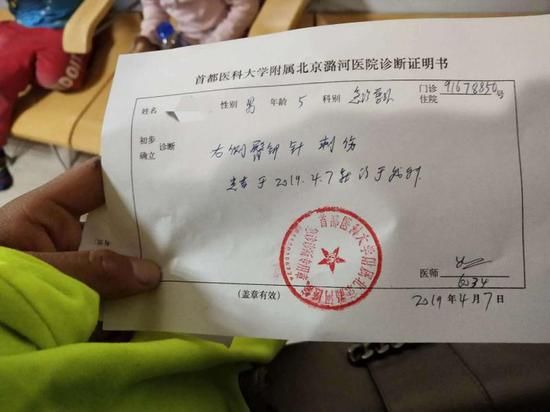 首都医科大学附属北京潞河医院诊断证明书
姓名 性别 男 年龄 5 科别 急诊 门诊 住院 号
初步 确立 诊断
右侧臀部针刺伤
患者于2019.4.7就诊于我院
首都医科大学附属北京潞河医院
医师
6034
(盖章有效)
2019年4月7日